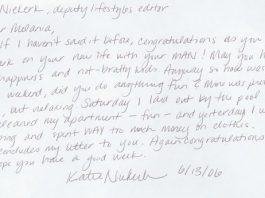 Niekerk, deputy lifestyles editor
r Melania,
If I haven't said it before, congratulations as you
rk on your new life with your MAN! May you h
happiness and not-bratty kids. Anyway so how was
weekend, did you do anything fun? Mine was pre
, but relaxing. Saturday I laid out by the pool
cleaned my apartment - fun - and yesterday I w
ping and spent WAY too much money on clothes.
cludes my letter to you. Again congratulations
ope you have a good week.
Katie Niekerk 6/13/06